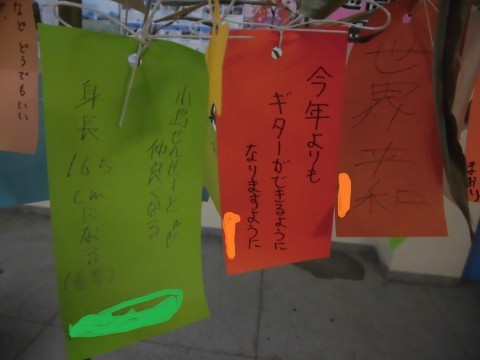 まおり
世界平和
今年よりも
ギターができるように
なりますように
せんせーと
仲良くなる
身長
165
cmになる
などどうでもいい